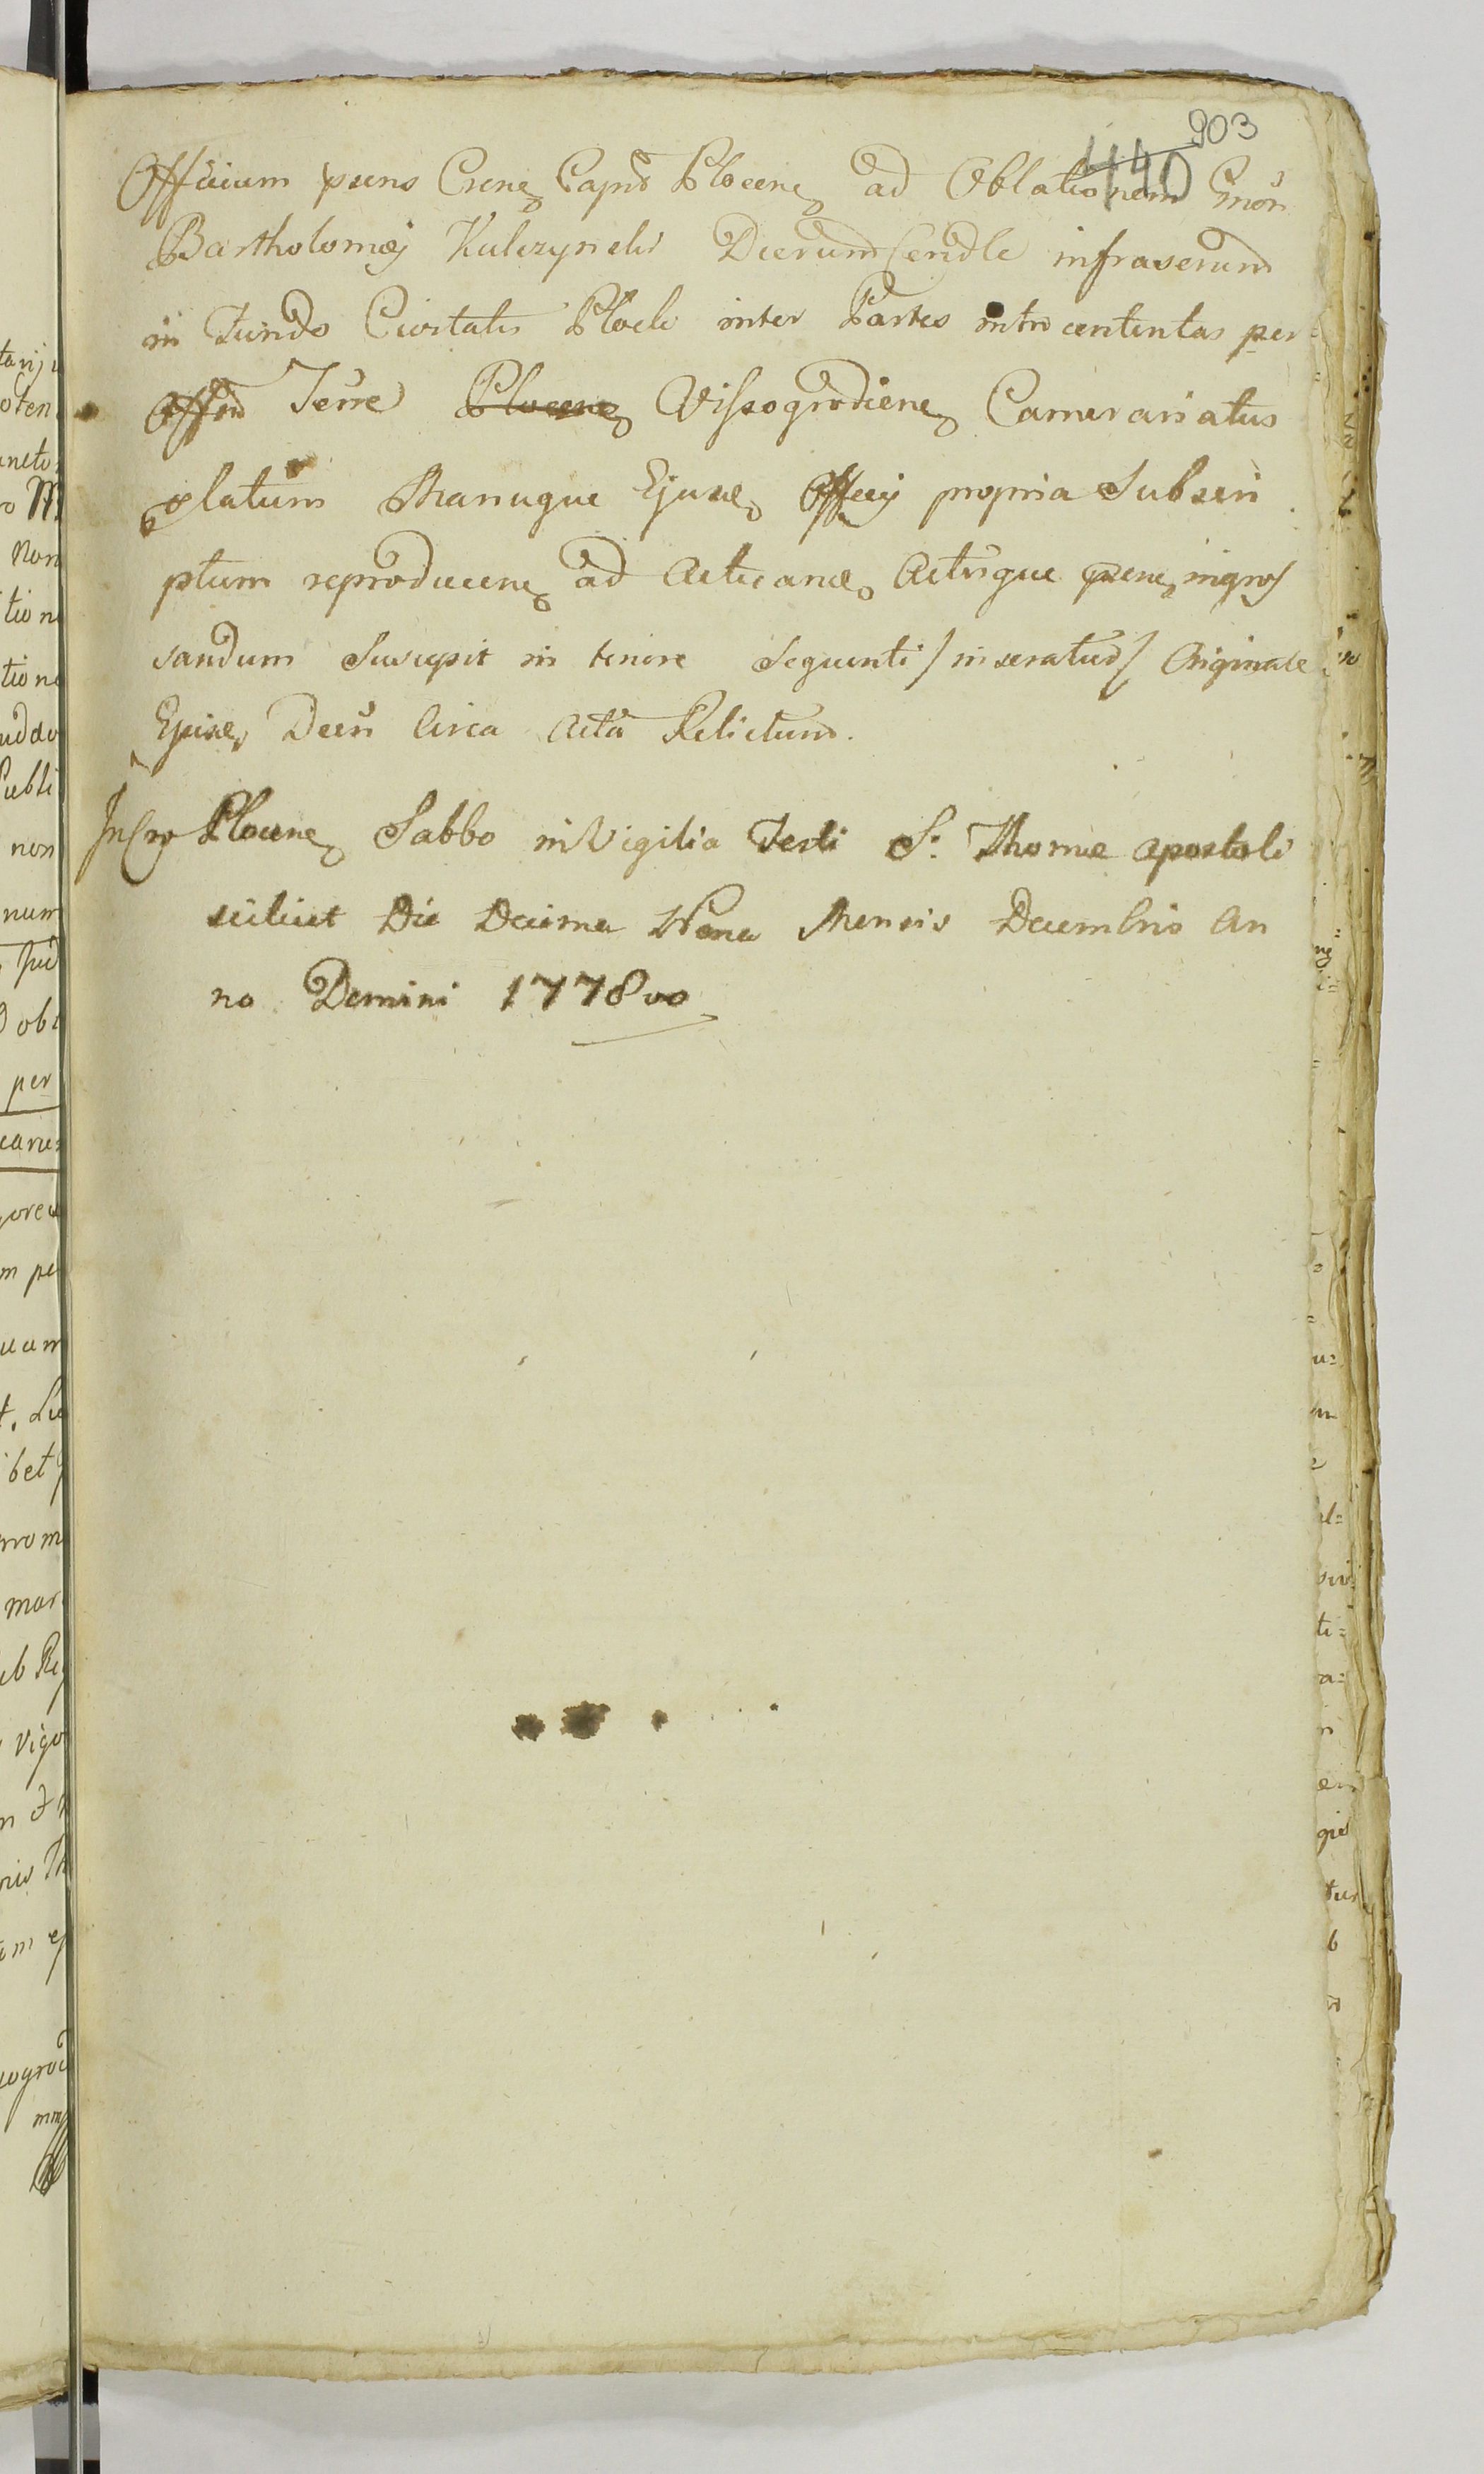 903
440
Officium psens Crene Capnd Plocene ad Oblationem Gnon
Bartholomæj Kulczynski Decrum Cendle infraserum
in Fundo Civitatis Plocki inter Partes intro contentas per=
Offm Terre Plocene Vissogrodiene Camerariatus
platum Manuque Ejusd Officij propria Subscri
ptum reproducene ad Acticand Actisque psene ingros
sandum Suscepit in tenore Sequenti / inseratur / Originale
Ejusd Decri Circa Acta Relictum.
In Cro Plocene Sabbo in Vigilia Festi S. Thomæ apostoli
scilicet Die Decima Nona Mensis Decembris An
no Domini 1778vo